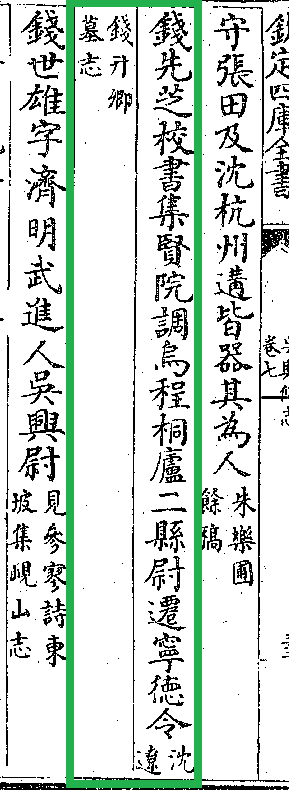 欽定四庫全書
卷七
守張田及沈杭州遘皆器其為人朱樂圃餘藁
錢先芝校書集賢院調烏程桐廬二縣尉遷寧德令沈遼
錢升卿墓志
錢世雄字濟明武進人吳興尉見參寥詩東坡集峴山志